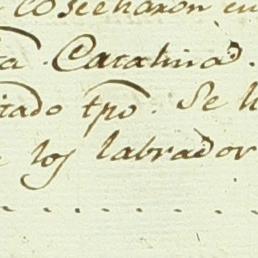 Cosecharon en
ta. Catalina.
itado tpo. Se h
los labrador